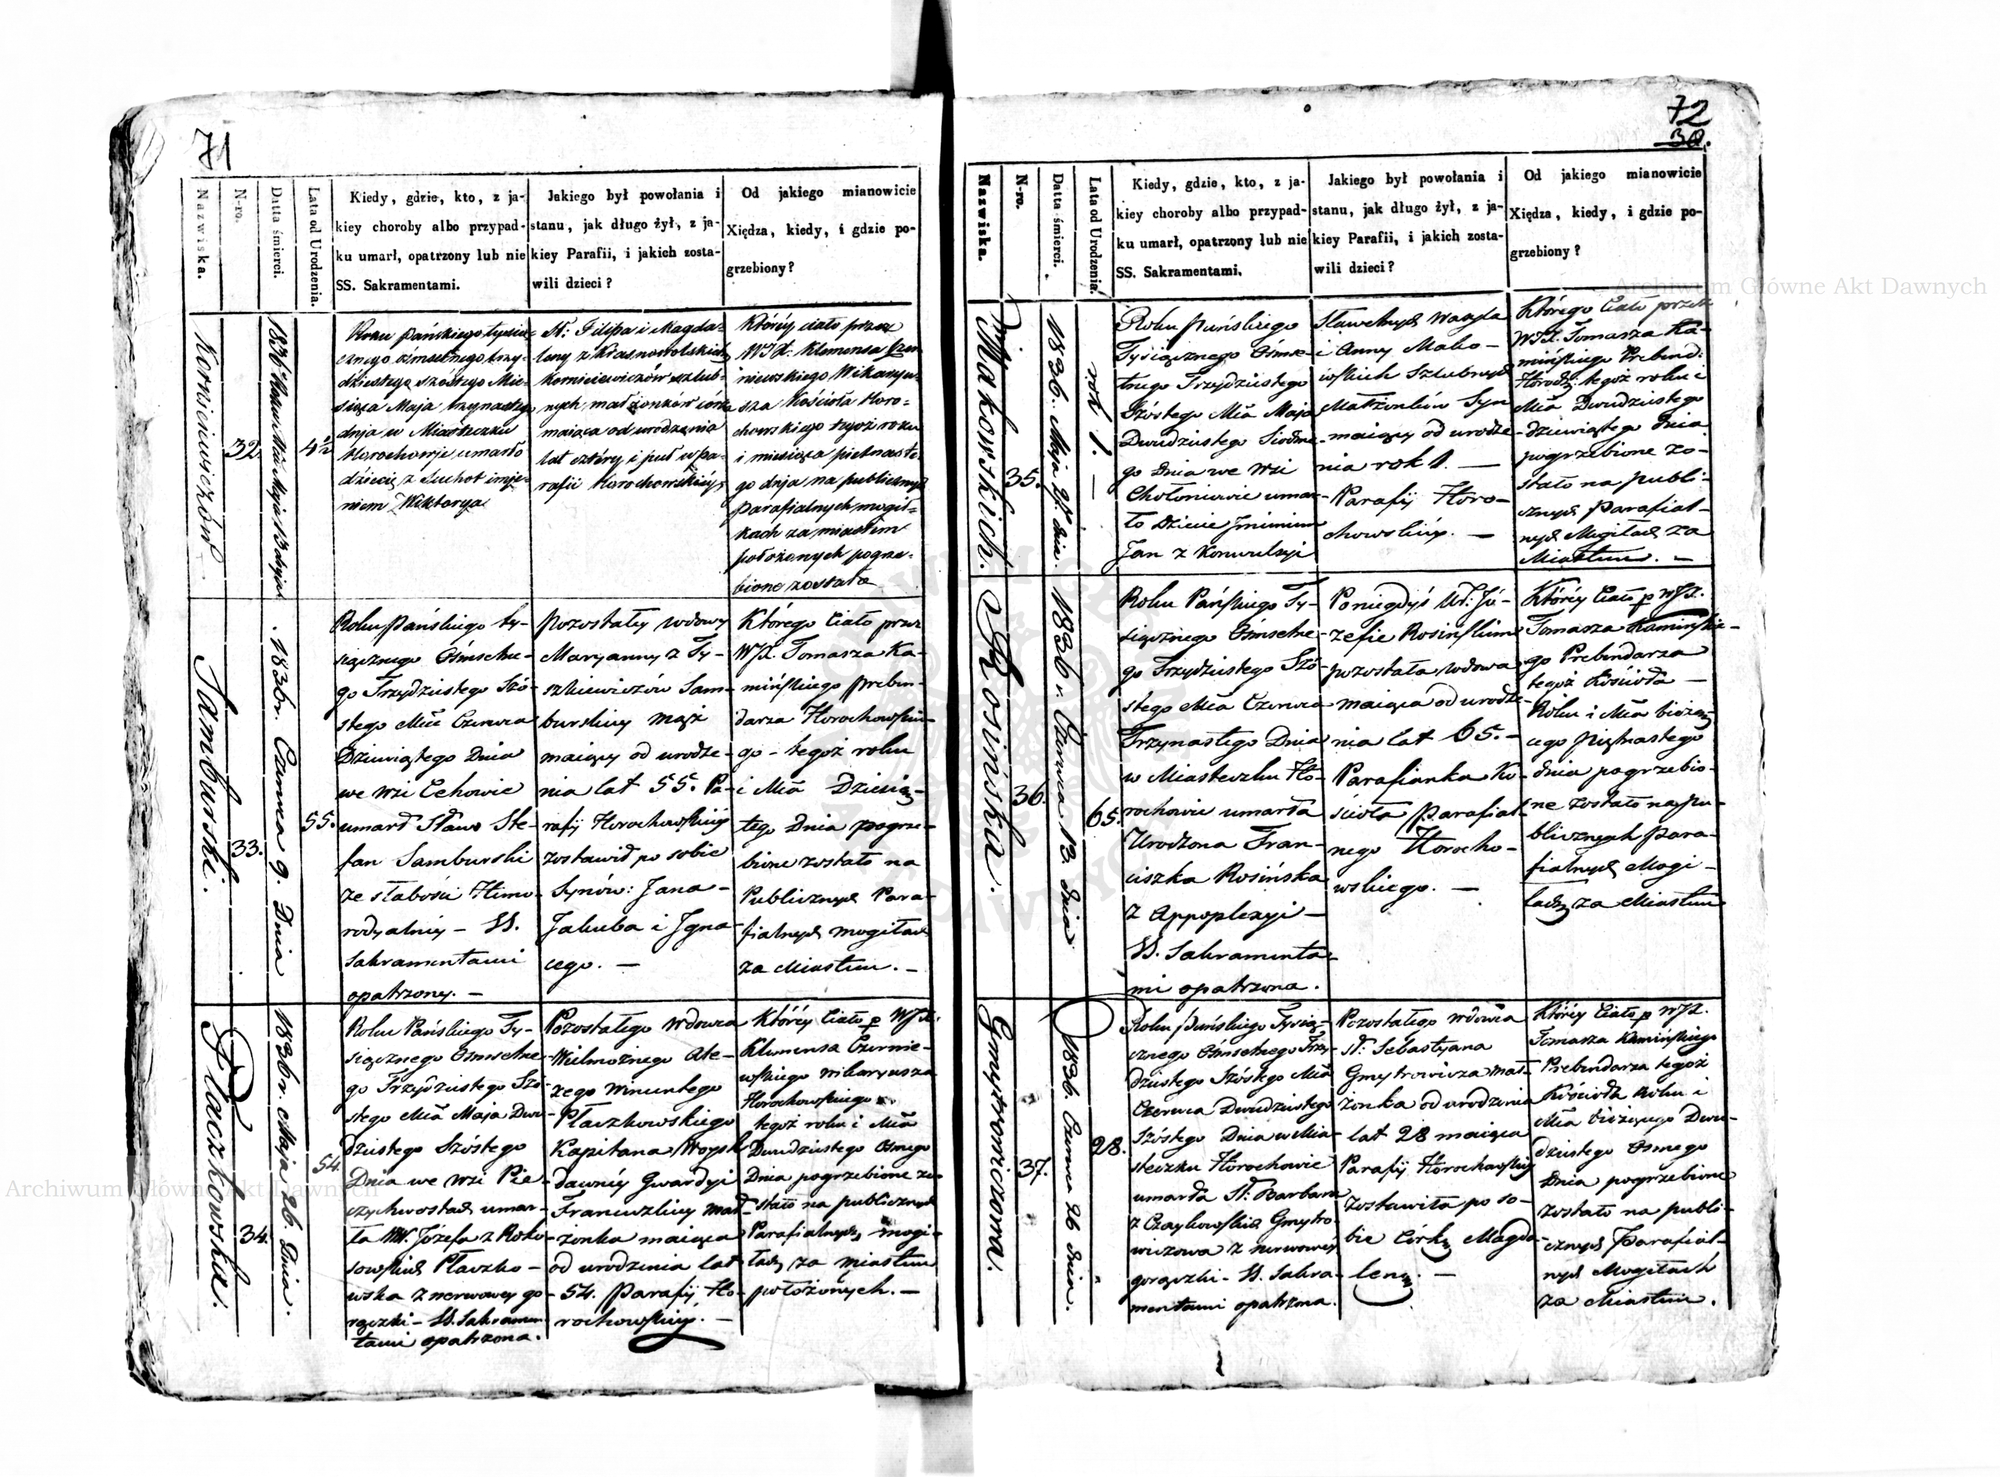 71
Nazwiska.
N-ro.
Datta śmierci.
Lata od Urodzenia.
Kiedy, gdzie, kto, z ja-
kiey choroby albo przypad-
ku umarł, opatrzony lub nie
SS. Sakramentami.
Jakiego był powołania i
stanu, jak długo żył, z ja-
kiey Parafii, i jakich zosta-
wili dzieci?
Od jakiego mianowicie
Xiędza, kiedy, i gdzie po-
grzebiony?
Korniciewiczów
32.
4½
Roku Pańskiego tysią-
cznego ośmsetnego trzy-
dziestego szóstego Mie-
siąca Maja trzynastego
dnja w Miasteczku
Horochowje umarło
dziecię z Suchot imje-
niem Wiktorya
Sł: Filipa i Magda-
leny z Krasnowolskich
Korniciewiczów szlub-
nych małżonków córka
maiąca od urodzenia
lat cztéry i puł w pa-
rafii Horochowskiéy
Któréy ciało przez
WJX. Klemensa Czer-
niewskiego Wikaryu-
sza Kościoła Horo-
chowskiego tegoż roku
i miesiąca pietnaste-
go dnja na publicznych
parafialnych mogił-
kach za miastem
położonych pogrze-
bione zostało
Samburski.
33.
1836 r. Czerwca 9. Dnia
55.
Roku Pańskiego ty-
siącznego Ośmsetne-
go Trzydziestego Szó-
stego Mca Czerwca
Dziewiątego Dnia
we wsi Echowie
umarł Sław: Ste-
fan Samburski
ze słabości Himo-
rodyalnéy – SS.
Sakramentami
opatrzony. –
Pozostałey wdowy
Maryanny z Ty-
szkiewiczów Sam-
burskiey mąż
maiący od urodze-
nia lat 55. Pa-
rafij Horochowskiéy
zostawił po sobie
Synów: Jana –
Jakuba i Igna-
cego. –
Którego Ciało przez
WJX. Tomasza Ka-
mińskiego Preben-
darza Horochowskie-
go – tegoż roku
i Mca Dziesią-
tego Dnia pogrze-
bione zostało na
Publicznych Para-
fialnych mogiłach
za Miastem. –
Płaczkowska.
34.
1836 r. Maja 26. Dnia.
54.
Roku Pańskiego Ty-
siącznego Ośmsetne-
go Trzydziestego Szó-
stego Mca Maja Dwu-
dziestego Szóstego
Dnia we wsi Pie-
czychwostach umar-
ła W. Józefa z Roko-
sowskich Płaczko-
wska z nerwowey go-
rączki – SS. Sakramen-
tami opatrzona.
Pozostałego Wdowca
Wielmożnego Ale-
xego Wincentego
Płaczkowskiego
Kapitana Woysk
dawnéy Gwardyi
Francuzkiey mał-
żonka maiąca
od urodzenia lat
54. Parafij Ho-
rochowskiéy. –
Któréy Ciało p WJX.
Klemensa Czernie-
wskiego Wikaryusza
Horochowskiego
tegoż roku i Mca
Dwudziestego Osmego
Dnia pogrzebione zo-
stało na publicznych
Parafialnych mogi-
łach za miastem
położonych. –
72
30.
Nazwiska.
N-ro.
Datta śmierci.
Lata od Urodzenia.
Kiedy, gdzie, kto, z ja-
kiey choroby albo przypad-
ku umarł, opatrzony lub nie
SS. Sakramentami.
Jakiego był powołania i
stanu, jak długo żył, z ja-
kiey Parafii, i jakich zosta-
wili dzieci?
Od jakiego mianowicie
Xiędza, kiedy, i gdzie po-
grzebiony?
Makowskich.
35.
1836. Maja 27. dnia.
rok 1. –
Roku Pańskiego
Tysiącznego Ośmse-
tnego Trzydziestego
Szóstego Mca Maja
Dwudziestego Siódme-
go Dnia we wsi
Chołoniowie umar-
ło Dziecie Jmieniem
Jan z Konwulsyi
Sławetnych Wasyla
i Anny Mako-
wskich Szlubnych
Małżonków Syn
maiący od urodze-
nia rok 1. –
Parafij Horo-
chowskiéy. –
Którego Ciało przez
WJX. Tomasza Ka-
mińskiego Prebend:
Horoch: tegoż roku i
Mca Dwudziestego
dziewiątego Dnia
pogrzebione zo-
stało na publi-
cznych Parafial-
nych Mogiłach za
Miastem. –
Rosińska.
36.
1836 r. Czerwca 13. dnia
65.
Roku Pańskiego Ty-
siącznego Ośmsetne-
go Trzydziestego Szó-
stego Mca Czerwca
Trzynastego Dnia
w Miasteczku Ho-
rochowie umarła
Urodzona Fran-
ciszka Rosińska
z Appoplexyi –
SS. Sakramenta-
mi opatrzona.
Po niegdyś Ur: Jó-
zefie Rosińskim
pozostała wdowa
maiąca od urodze-
nia lat 65. –
Parafianka Ko-
ścioła Parafial-
nego Horocho-
wskiego. –
Któréy Ciało p WJX.
Tomasza Kamińskie-
go Prebendarza
tegoż Kościoła –
Roku i Mca bieżą-
cego Piętnastego
dnia pogrzebio-
ne zostało na pu-
blicznych para-
fialnych Mogi-
łach za Miastem
Gmytrowiczowa.
37.
1836. Czerwca 26 dnia.
28.
Roku Pańskiego Tysią-
cznego Ośmsetnego Trzy-
dziestego Szóstego Mca
Czerwca Dwudziestego
Szóstego Dnia w Mia-
steczku Horochowie
umarła Sł: Barbara
z Czaykowskich Gmytro-
wiczowa z nerwowey
gorączki – SS. Sakra-
mentami opatrzona.
Pozostałego Wdowca
Sł: Sebastyana
Gmytrowicza mał-
żonka od urodzenia
lat 28 maiąca
Parafij Horochowskiéy
zostawiła po so-
bie Córkę Magda-
lenę. –
Któréy Ciało p WJX.
Tomasza Kamińskiego
Prebendarza tegoż
Kościoła Roku i
Mca bieżącego Dwu-
dziestego Osmego
Dnia pogrzebione
zostało na publi-
cznych Parafial-
nych Mogiłach
za Miastem.
Archiwum Główne Akt Dawnych
Archiwum Główne Akt Dawnych